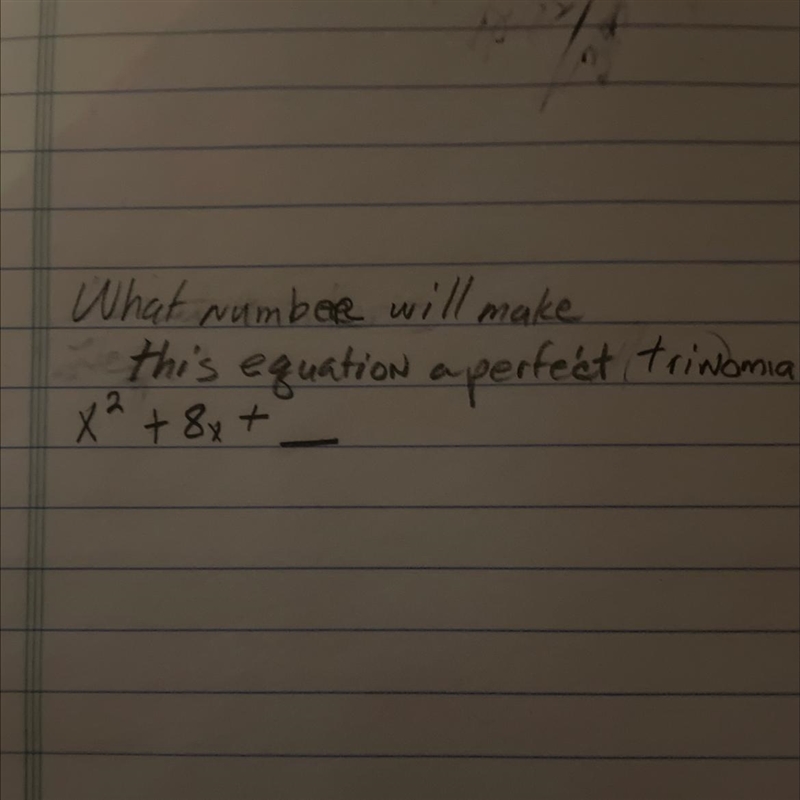 What number will make
this equation a perfect trinomia
x² + 8x + __